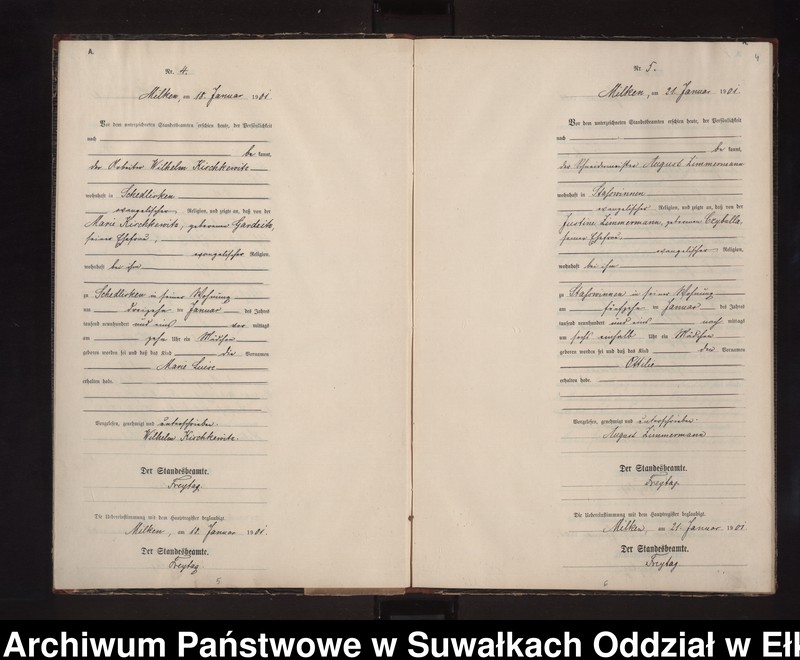 A.
Nr. 4.
Milken, am 18. Januar 1901.
Vor dem unterzeichneten Standesbeamten erschien heute, der Persönlichkeit
nach
be kannt,
der Arbeiter Wilhelm Kirchkewitz
wohnhaft in Schedlisken
evangelischer Religion, und zeigte an, daß von der
Marie Kirchkewitz, geborenen
seiner Ehefrau,
evangelischer Religion,
wohnhaft bei ihm
zu Schedlisken in seiner Wohnung
am dreizehn ten Januar des Jahres
tausend neunhundert und eins vor mittags
um zehn Uhr ein Mädchen
geboren worden sei und daß das Kind die Vornamen
Marie Luise
erhalten habe.
Vorgelesen, genehmigt und unterschrieben.
Wilhelm Kirchkewitz.
Der Standesbeamte.
Freytag.
Die Uebereinstimmung mit dem Hauptregister beglaubigt.
Milken, am 18. Januar 1901.
Der Standesbeamte.
Freytag
5
4
Nr. 5.
Milken, am 21. Januar 1901.
Vor dem unterzeichneten Standesbeamten erschien heute, der Persönlichkeit
nach
be kannt,
der Schneidermeister August Zimmermann
wohnhaft in Staßwinnen
evangelischer Religion, und zeigte an, daß von der
Justine Zimmermann, geborenen Czybulla,
seiner Ehefrau,
evangelischer Religion,
wohnhaft bei ihm
zu Staßwinnen in seiner Wohnung
am fünfzehn ten Januar des Jahres
tausend neunhundert und eins nach mittags
um sechs einhalb Uhr ein Mädchen
geboren worden sei und daß das Kind den Vornamen
Ottilie
erhalten habe.
Vorgelesen, genehmigt und unterschrieben.
August Zimmermann
Der Standesbeamte.
Freytag.
Die Uebereinstimmung mit dem Hauptregister beglaubigt.
Milken, am 21. Januar 1901.
Der Standesbeamte.
Freytag
6
Archiwum Państwowe w Suwałkach Oddział w Ełk